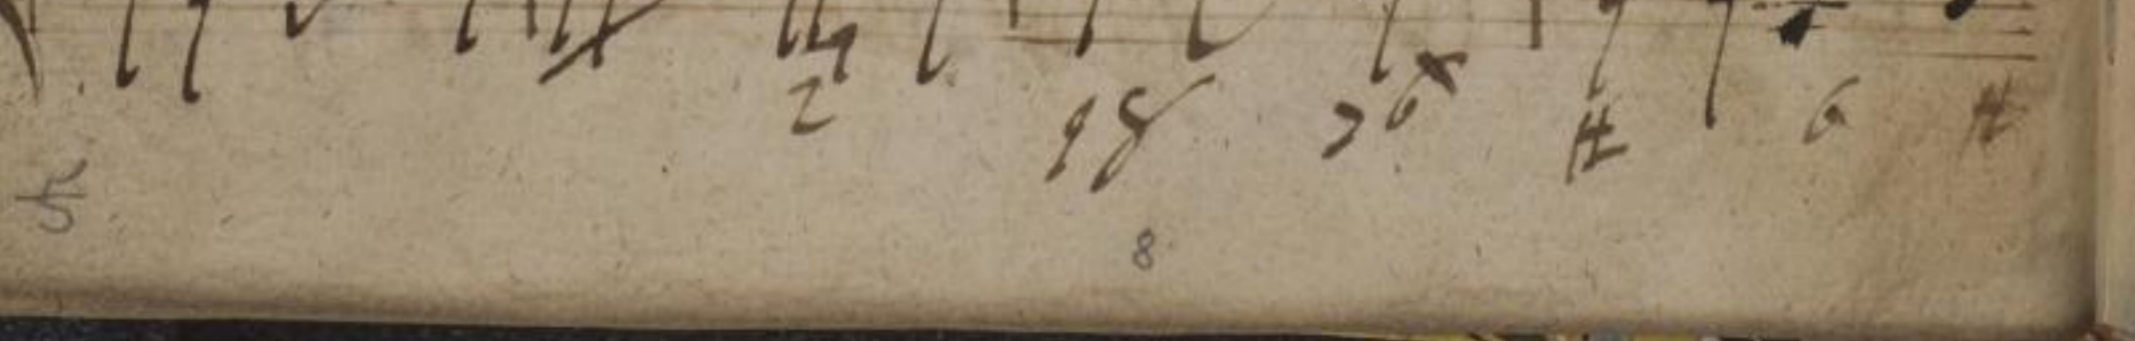 2 9 8 7 6 # 6 #
5
8